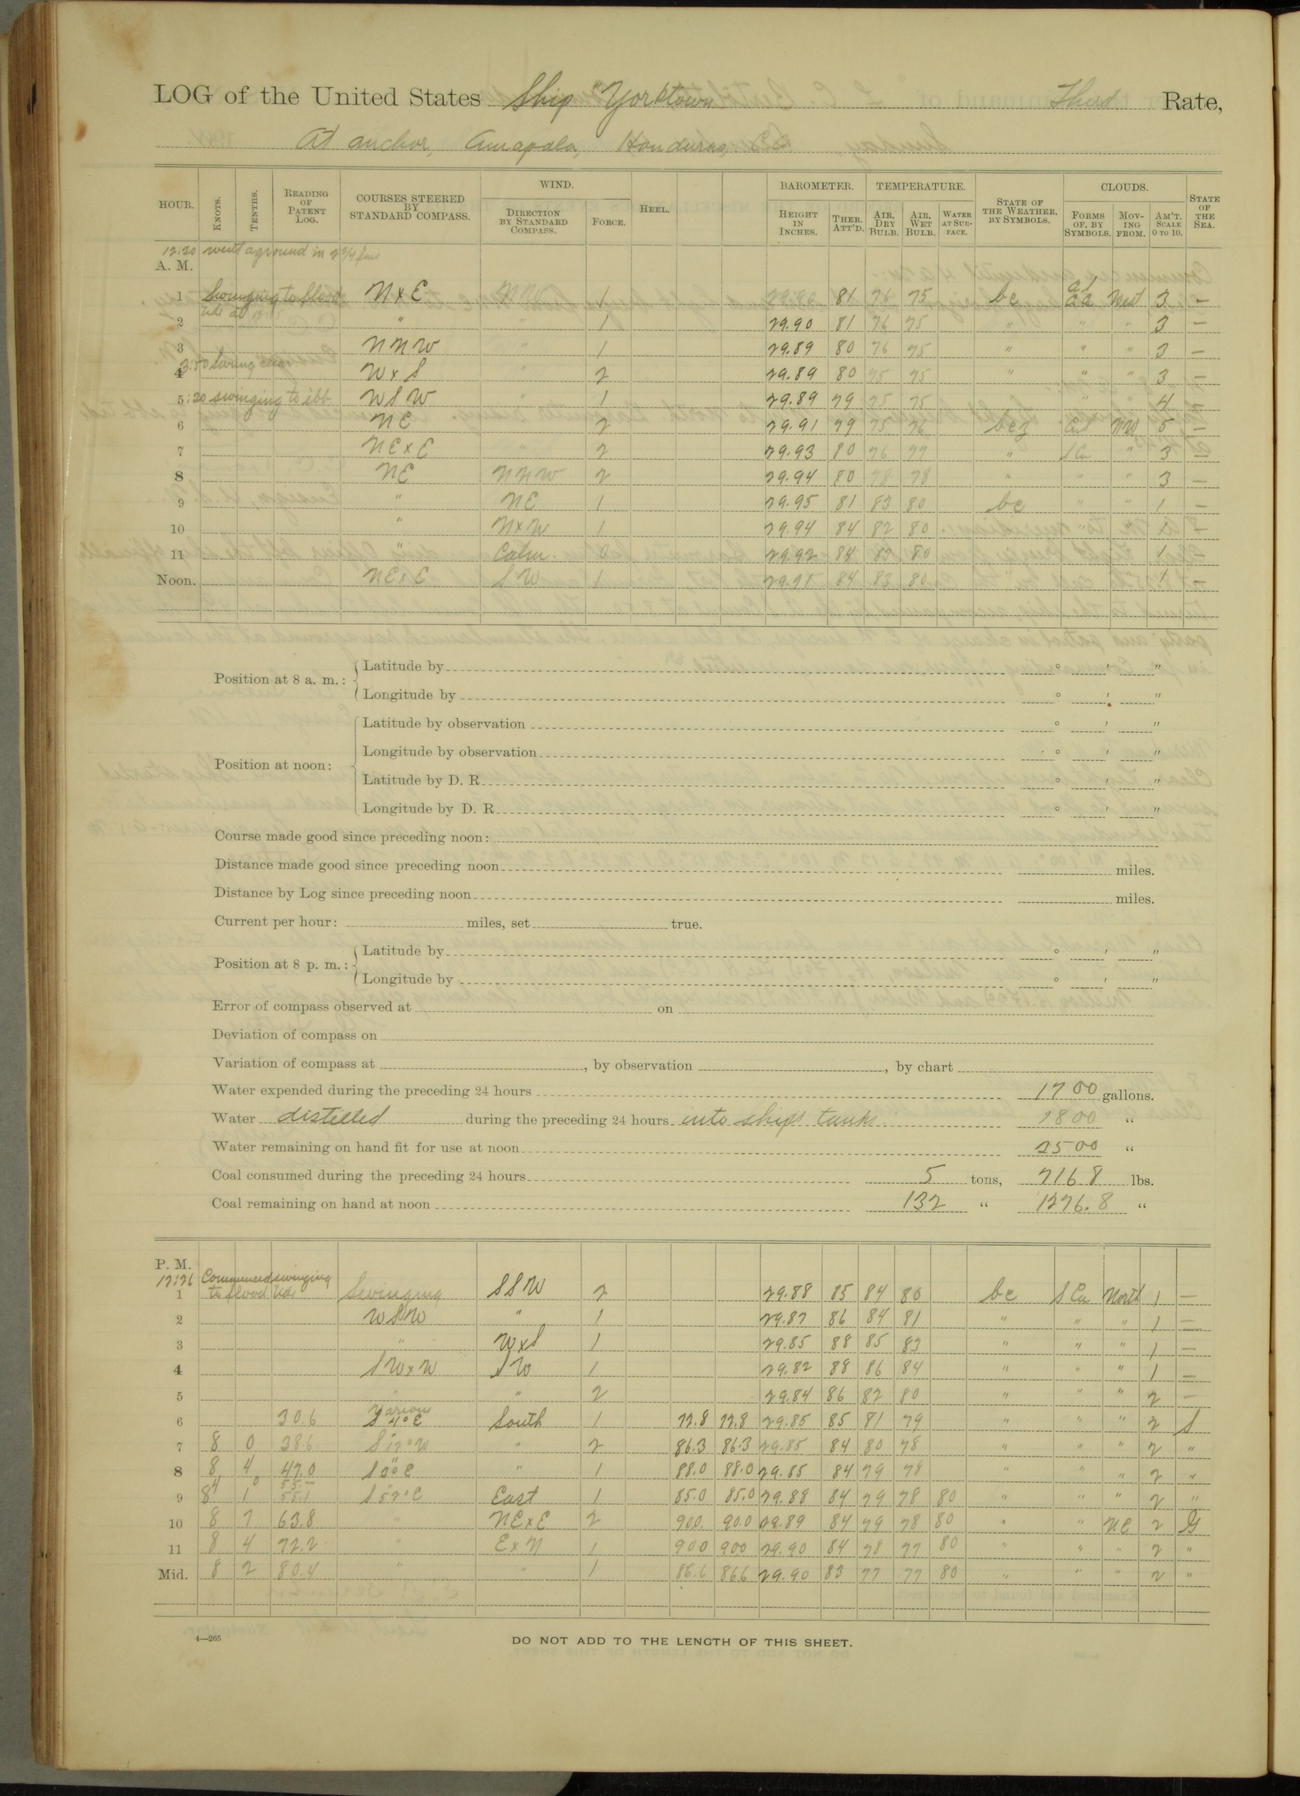 LOG of the United States Ship "Yorktown" Third Rate,
At anchor, Amapala, Honduras,
HOUR. KNOTS. TENTHS. READING OF PATENT LOG. COURSES STEERED BY STANDARD COMPASS. WIND. DIRECTION BY STANDARD COMPASS. FORCE. HEEL. BAROMETER. HEIGHT IN INCHES. THER. ATT'D. TEMPERATURE. AIR, DRY BULB. AIR, WET BULB. WATER AT SURFACE. STATE OF THE WEATHER, BY SYMBOLS. CLOUDS. FORMS OF, BY SYMBOLS. MOVING FROM. AM'T. SCALE 0 TO 10. STATE OF THE SEA.
12:20 went aground in 2 3/4 fms
A. M.
1 Swinging to flood NxE 1 81 76 75 bc West 3 —
2 tide at " " 1 29.90 81 76 75 " " " 3 —
3 NNW " 1 29.89 80 76 75 " " " 3 —
4 3:50 Swung WxS " 2 29.89 80 75 75 " " " 3 —
5 :20 swinging to ebb WSW " 1 29.89 79 75 75 " " " 4 —
6 NE " 2 29.91 79 75 76 bcz NW 5 —
7 NExE " 2 29.93 80 76 77 " " 3 —
8 NE NNW 2 29.94 80 78 78 " " " 3 —
9 " NE 1 29.95 81 83 80 bc " " 1 —
10 " NxW 1 29.94 84 82 80 " " " 1 —
11 " Calm. 0 29.92 84 83 80 " " " 1 —
Noon. NExE SW 1 29.91 84 83 80 " " " 1 —
Position at 8 a. m.: Latitude by ° ′ ″
Longitude by ° ′ ″
Position at noon: Latitude by observation ° ′ ″
Longitude by observation ° ′ ″
Latitude by D. R. ° ′ ″
Longitude by D. R. ° ′ ″
Course made good since preceding noon:
Distance made good since preceding noon miles.
Distance by Log since preceding noon miles.
Current per hour: miles, set true.
Position at 8 p. m.: Latitude by ° ′ ″
Longitude by ° ′ ″
Error of compass observed at on
Deviation of compass on
Variation of compass at , by observation , by chart
Water expended during the preceding 24 hours 1700 gallons.
Water distilled during the preceding 24 hours into ships tanks 1800 "
Water remaining on hand fit for use at noon 2500 "
Coal consumed during the preceding 24 hours 5 tons, 216.8 lbs.
Coal remaining on hand at noon 132 " 1276.8 "
P. M.
12:26 Commenced swinging
1 to flood tide Swinging SSW 2 29.88 85 84 80 bc S Cu North 1 —
2 WSW " 1 29.87 86 84 81 " " " 1 —
3 " WxS 1 29.85 88 85 83 " " " 1 —
4 SWxW SW 1 29.82 88 86 84 " " " 1 —
5 " " 2 29.84 86 82 80 " " " 2 —
Various
6 30.6 S 4° E South 1 72.8 72.8 29.85 85 81 79 " " " 2 S
7 8 0 38.6 S 17° W " 2 86.3 86.3 29.85 84 80 78 " " " 2 "
8 8 4 47.0 " 1 88.0 88.0 29.85 84 79 78 " " " 2 "
9 8 1 55.1 S 57° E East 1 85.0 85.0 29.88 84 79 78 80 " " " 2 "
10 8 7 63.8 " NExE 2 90.0 90.0 29.89 84 79 78 80 " " NE 2 G
11 8 4 72.2 " ExN 1 90.0 90.0 29.90 84 78 77 80 " " " 2 "
Mid. 8 2 80.4 " " 1 86.6 86.6 29.90 83 77 77 80 " " " 2 "
4—265
DO NOT ADD TO THE LENGTH OF THIS SHEET.